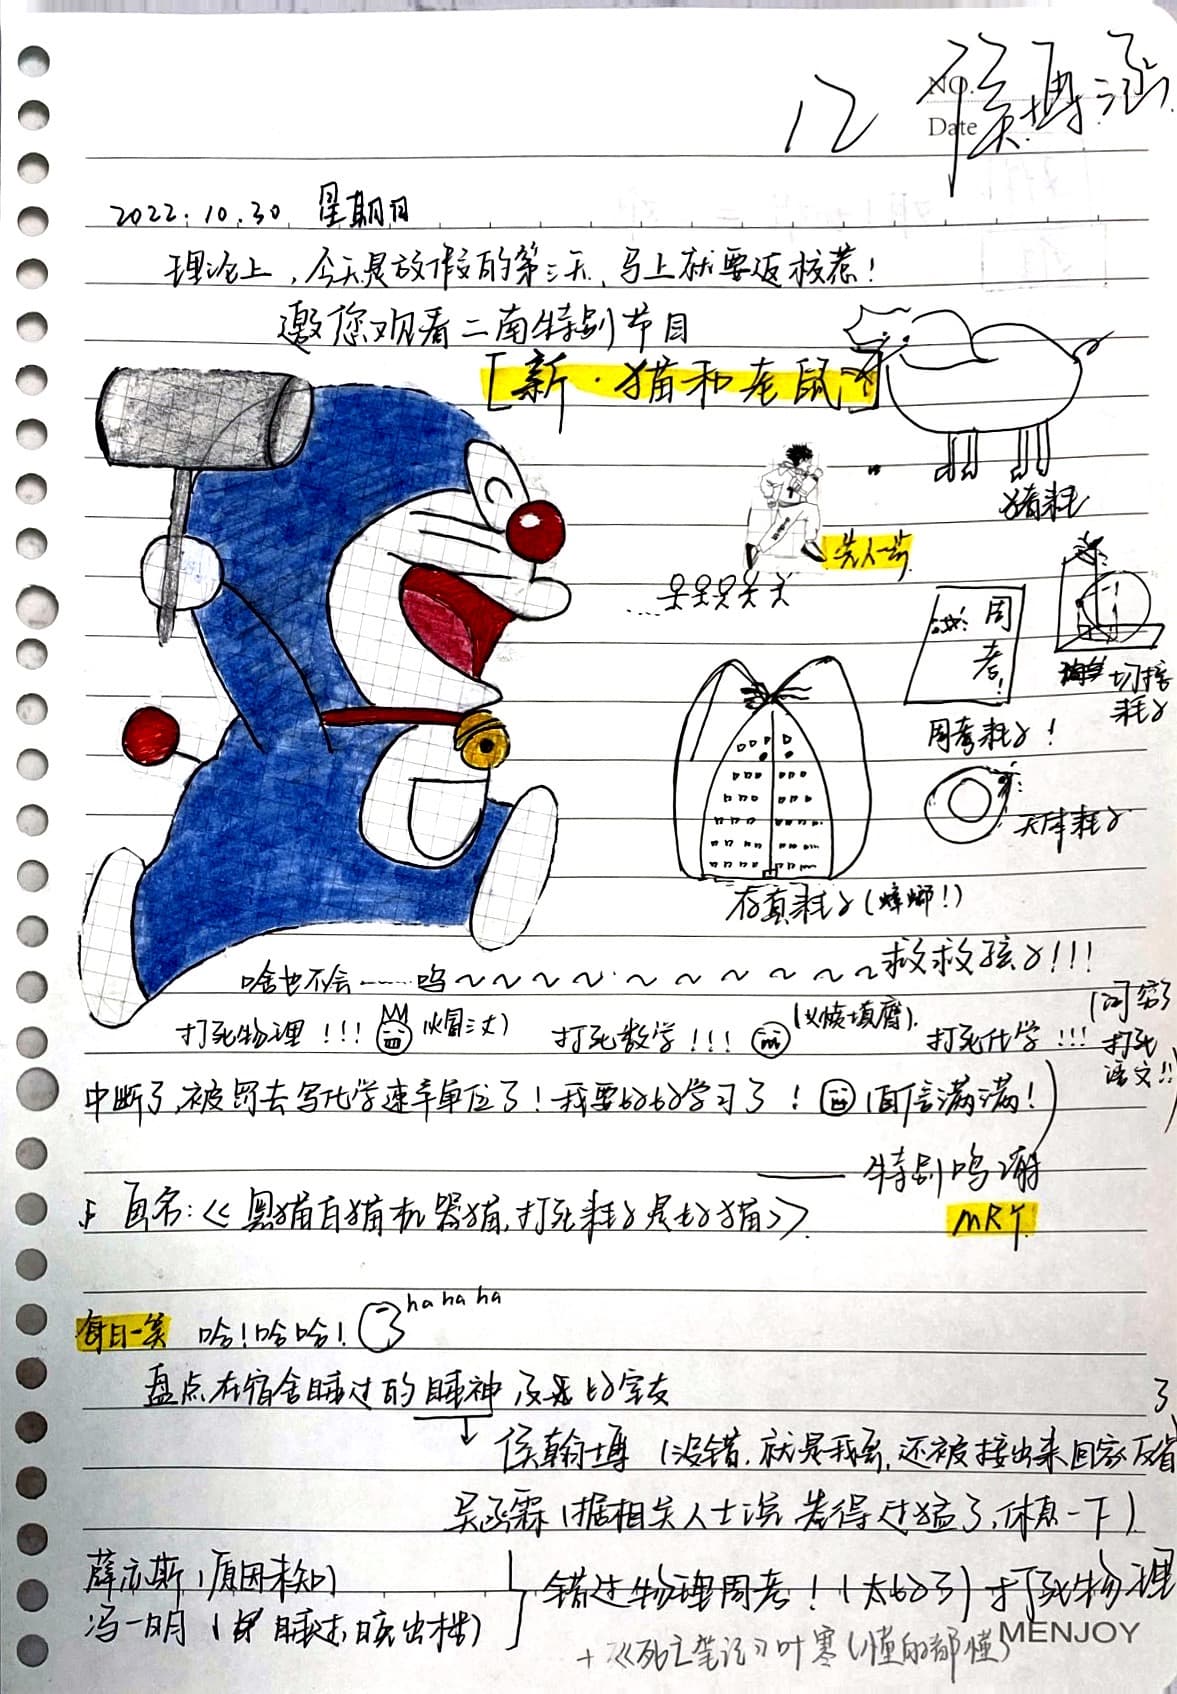 12 侯博涵
NO.
Date
2022.10.30 星期日
理论上，今天是放假的第三天，马上就要返校惹！
邀您观看二南特别节目
「新·猫和老鼠」
猪耗
先人一步
试：周考！
切接耗子
周考耗子！
天体耗子
存真耗子（蟑螂！）
啥也不会……呜～～～～～～～～～～救救孩子！！！
打死物理！！！（火冒三丈） 打死数学！！！（义愤填膺）. 打死化学！！！
打死语文！！
中断了，被罚去写化学速率单位了！我要好好学习了！（自信满满！）
——特别鸣谢
画名：《黑猫白猫机器猫，打死耗子是好猫》
MRY
每日一笑 哈！哈哈！ ha ha ha
盘点在宿舍睡过的睡神及恶的室友
侯翰博（没错，就是我弟，还被接出来回家反省了）
吴丞霖（据相关人士说 卷得过猛了，休息一下）
薛亦斯（原因未知）
冯一明（睡过）
错过物理周考！（太好了）打死物理
+《死亡笔记》叶寒（懂的都懂）
MENJOY